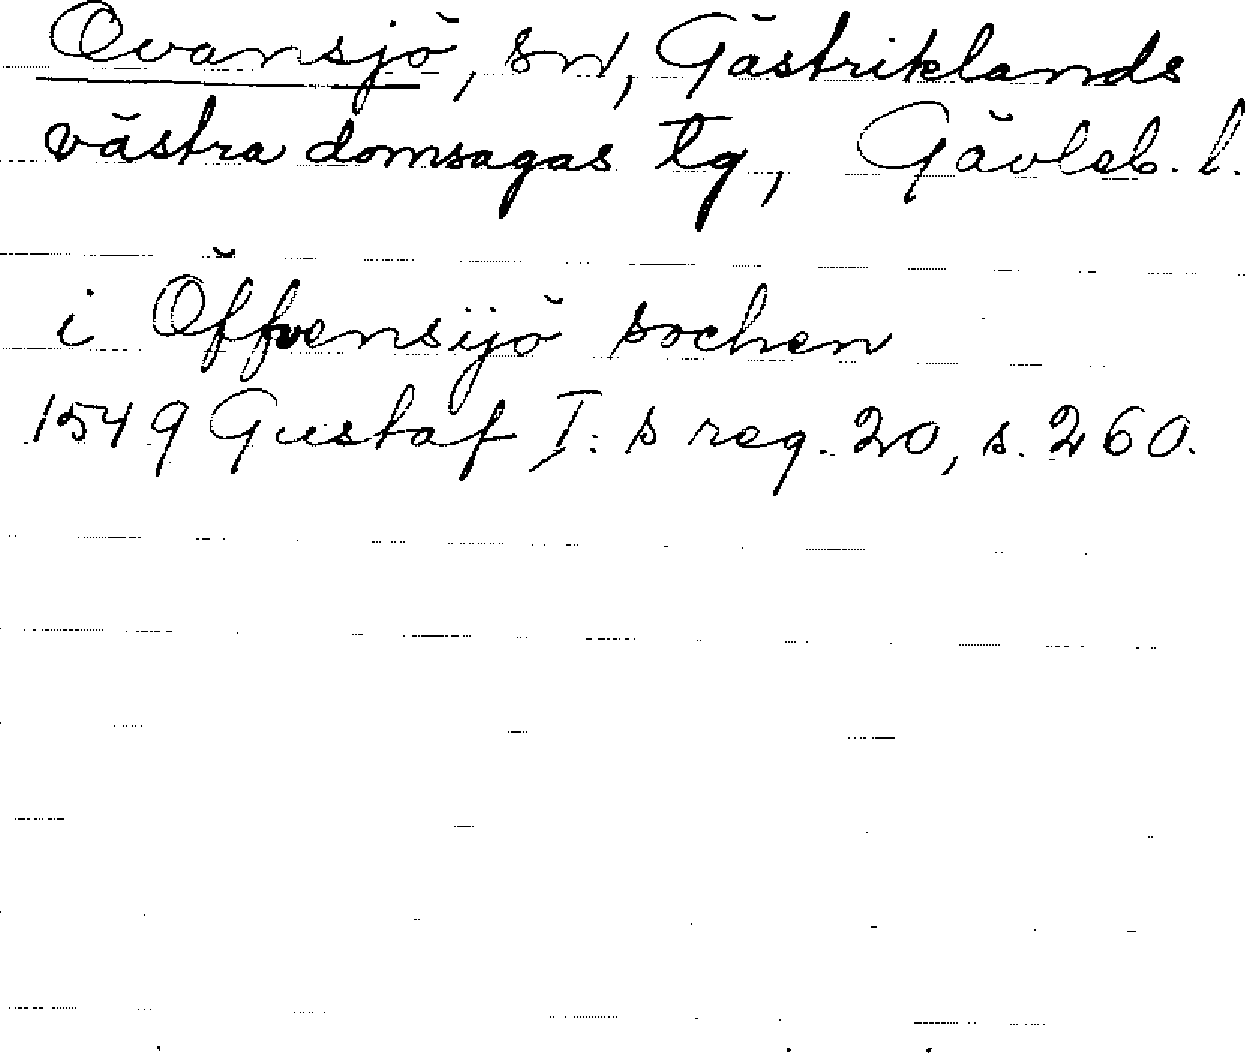 Ovansjö, sn, Gästriklands
västra domsagas tg, Gävleb. l.
i Öffvensijö sochen
1549 Gustaf I:s reg. 20, s. 260.